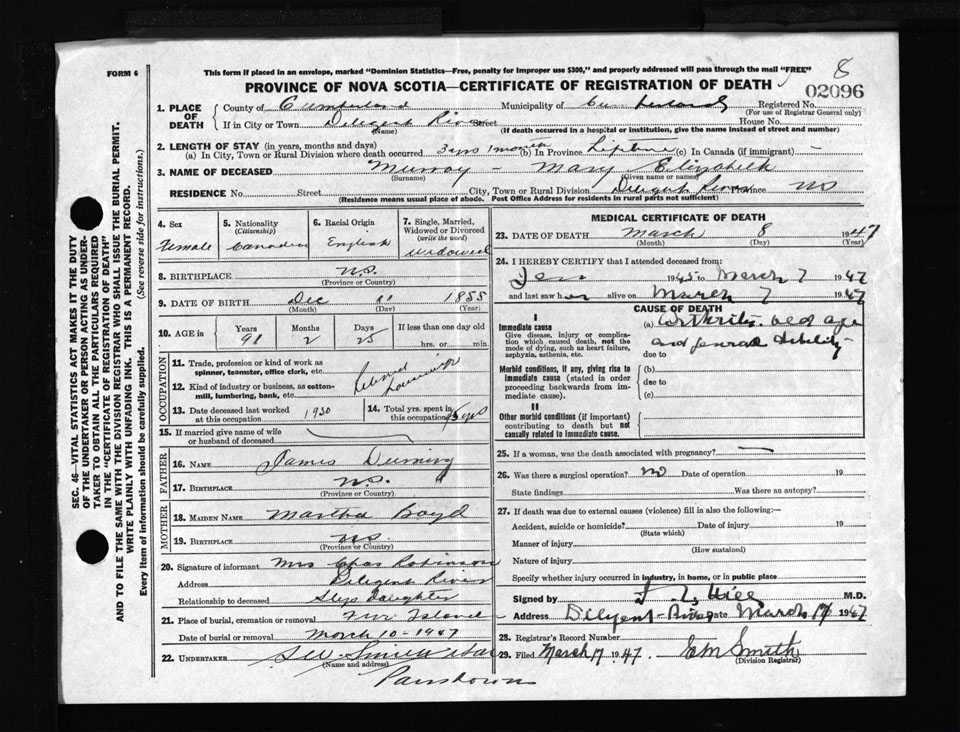 FORM 6
This form if placed in an envelope, marked "Dominion Statistics—Free, penalty for improper use $300," and properly addressed will pass through the mail "FREE"
8
PROVINCE OF NOVA SCOTIA—CERTIFICATE OF REGISTRATION OF DEATH
02096
1. PLACE OF DEATH
County of Cumberland Municipality of Cumberland Registered No.
(For use of Registrar General only)
If in City or Town Diligent River Street House No.
(Name) (If death occurred in a hospital or institution, give the name instead of street and number)
2. LENGTH OF STAY (in years, months and days)
(a) In City, Town or Rural Division where death occurred 3 yrs 1 month (b) In Province Lifetime (c) In Canada (if immigrant) —
3. NAME OF DECEASED Murray - Mary Elizabeth
(Surname) (Given name or names)
RESIDENCE No. Street City, Town or Rural Division Diligent River Province NS
(Residence means usual place of abode. Post Office Address for residents in rural parts not sufficient)
4. Sex
Female
5. Nationality
(Citizenship)
Canadian
6. Racial Origin
English
7. Single, Married, Widowed or Divorced
(write the word)
Widowed
8. BIRTHPLACE N.S.
(Province or Country)
9. DATE OF BIRTH Dec 11 1855
(Month) (Day) (Year)
10. AGE in
Years Months Days If less than one day old
91 2 25 hrs. or min.
OCCUPATION
11. Trade, profession or kind of work as spinner, teamster, office clerk, etc.
12. Kind of industry or business, as cotton-mill, lumbering, bank, etc.
13. Date deceased last worked at this occupation 1930
14. Total yrs. spent in this occupation
15. If married give name of wife or husband of deceased
FATHER
16. NAME James Deming
17. BIRTHPLACE N.S.
(Province or Country)
MOTHER
18. MAIDEN NAME Martha Boyd
19. BIRTHPLACE NS
(Province or Country)
20. Signature of informant Mrs Chas Robinson
Address Diligent River
Relationship to deceased Step Daughter
21. Place of burial, cremation or removal Island
Date of burial or removal March 10 - 1947
22. UNDERTAKER Smith
(Name and address)
MEDICAL CERTIFICATE OF DEATH
23. DATE OF DEATH March 8 1947
(Month) (Day) (Year)
24. I HEREBY CERTIFY that I attended deceased from:
Jan 1945 to March 7 1947
and last saw her alive on March 7 1947
CAUSE OF DEATH
I
Immediate cause
Give disease, injury or complication which caused death, not the mode of dying, such as heart failure, asphyxia, asthenia, etc.
(a) Arthritis. old age
and general debility
due to
Morbid conditions, if any, giving rise to immediate cause (stated in order proceeding backwards from immediate cause).
(b)
due to
(c)
II
Other morbid conditions (if important) contributing to death but not causally related to immediate cause.
25. If a woman, was the death associated with pregnancy? —
26. Was there a surgical operation? No Date of operation 19
State findings Was there an autopsy?
27. If death was due to external causes (violence) fill in also the following:—
Accident, suicide or homicide? Date of injury 19
(State which)
Manner of injury
(How sustained)
Nature of injury
Specify whether injury occurred in industry, in home, or in public place
Signed by Hill M.D.
Address Diligent River Date March 1947
28. Registrar's Record Number
29. Filed March 17 1947. EM Smith
(Division Registrar)
SEC. 46—VITAL STATISTICS ACT MAKES IT THE DUTY
OF THE UNDERTAKER OR PERSON ACTING AS UNDER-
TAKER TO OBTAIN ALL THE PARTICULARS REQUIRED
IN THE "CERTIFICATE OF REGISTRATION OF DEATH"
AND TO FILE THE SAME WITH THE DIVISION REGISTRAR WHO SHALL ISSUE THE BURIAL PERMIT.
WRITE PLAINLY WITH UNFADING INK. THIS IS A PERMANENT RECORD.
Every item of information should be carefully supplied. (See reverse side for instructions.)